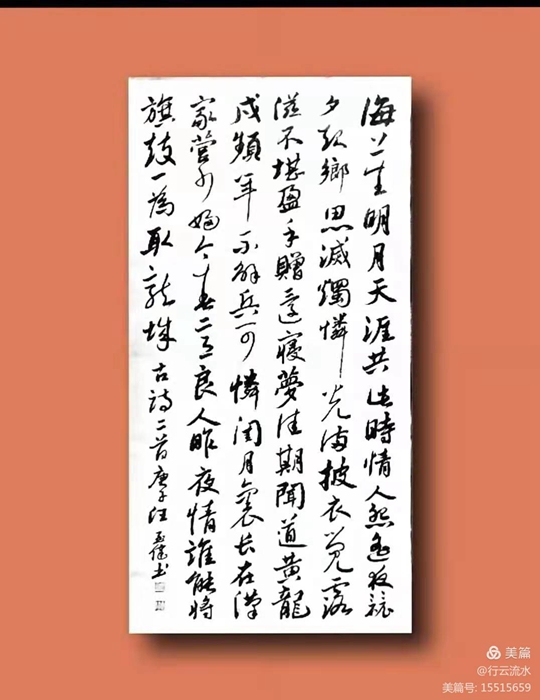 海上生明月天涯共此時情人怨遙夜竟
夕起鄉思滅燭憐光滿披衣覺露
滋不堪盈手贈還寢夢佳期聞道黃龍
戍頻年不解兵可憐閨月裏长在漢
家營少婦今春意良人昨夜情誰能將
旗鼓一為取龍城 古詩二首庚子汪玉健书
美篇
@行云流水
美篇号: 15515659